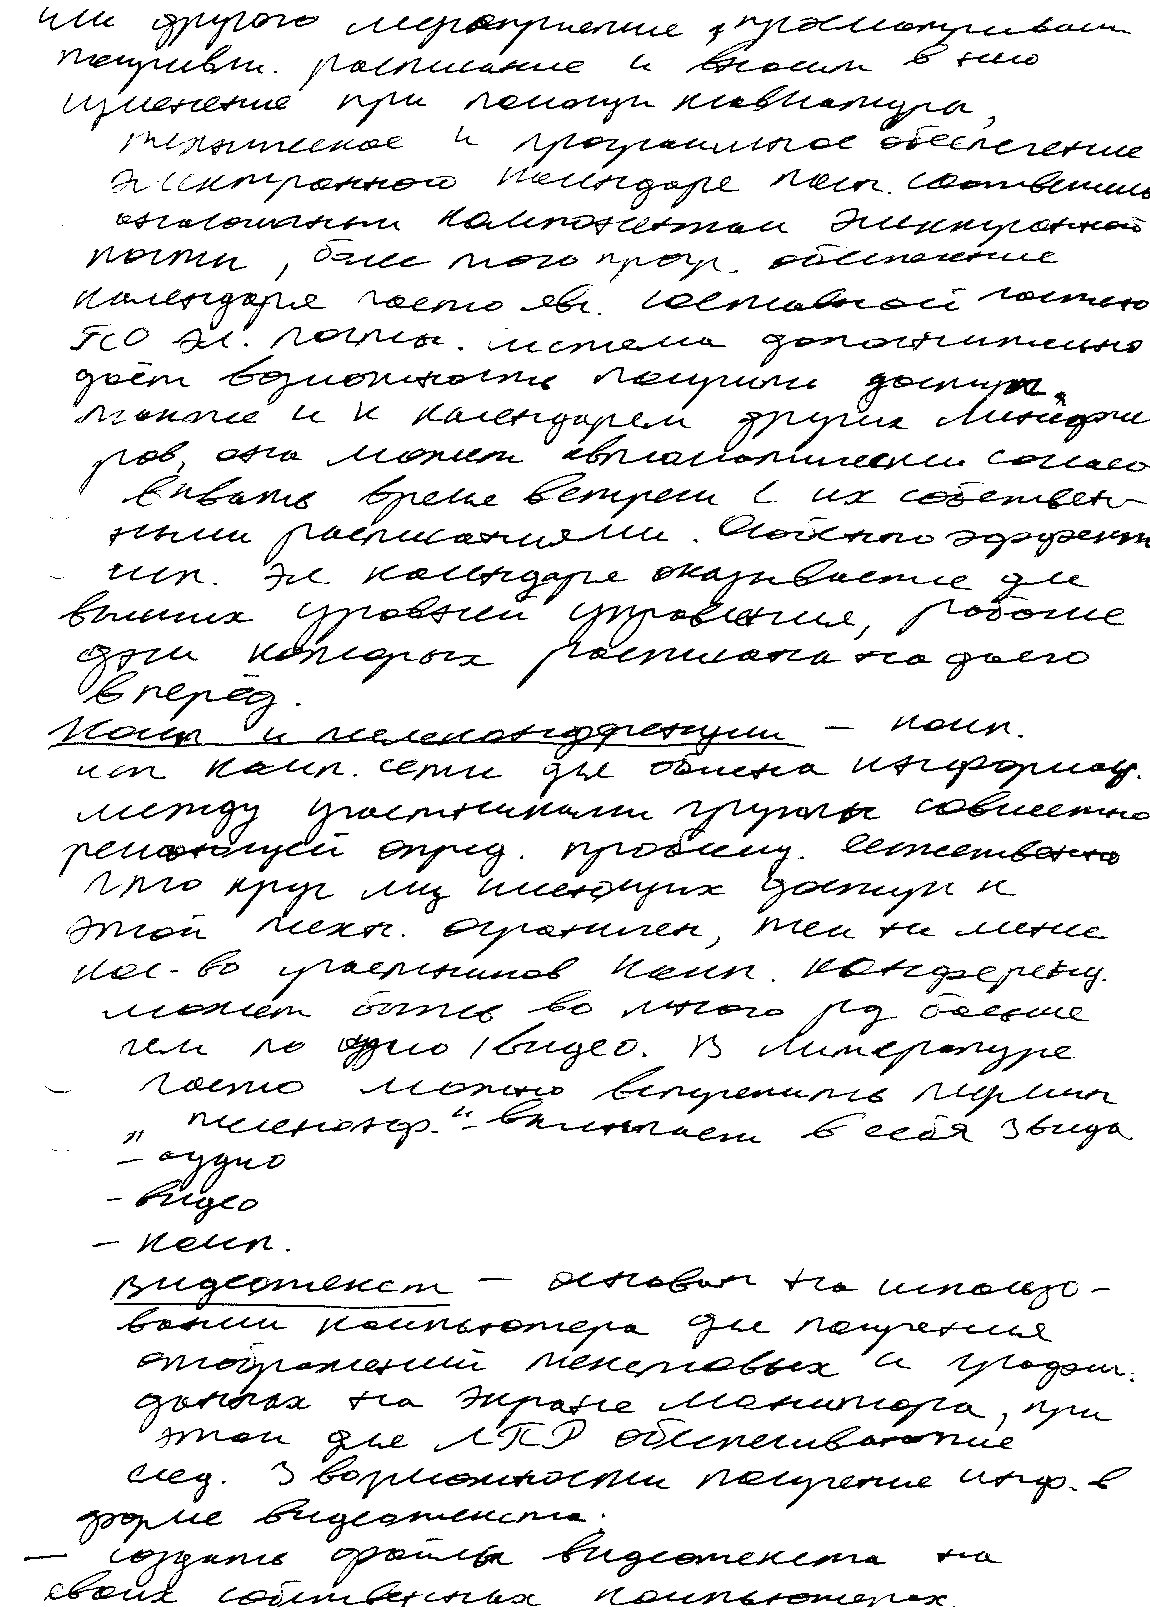 или другого мероприятие, просматриваем
получивш. расписание и вносим в него
изменение при помощи клавиатуры,
техническое и програмное обеспечение
электронной календаре полн. соответств
аналогичным компонентам электронной
почты, более того прогр. обеспечение
календаря часто явл. составной частью
ПО эл. почты. система дополнительно
даёт возможность получить доступ
также и к календарем других менедже
ров, она может автоматически согласо
вывать время встречи с их собствен-
ными расписаниями. Особенно эффект
исп. эл календаре оказывается для
высших уровней управления, рабочие
дни которых расписана на долго
вперёд.
Комп и телеконференции – комп.
исп комп. сети для обмена информац.
между участниками группы совместно
решающей опред. проблему. Естественно
что круг лиц имеющих доступ к
этой техн. ограничен, тем не менее
кол-во участников комп. конференц.
может быть во много раз больше
чем по аудио / видео. В литературе
часто можно встретить термин
„телеконф.“ – включает в себя 3 вида
– аудио
– видео
– комп.
Видеотекст – основан на использо-
вании компьютера для получения
отображений текстовых и графич.
данных на экране монитора, при
этом для ЛПР обеспечиваются
след. 3 возможности получение инф. в
форме видеотекста.
– создать файлы видеотекста на
своих собственных компьютерах